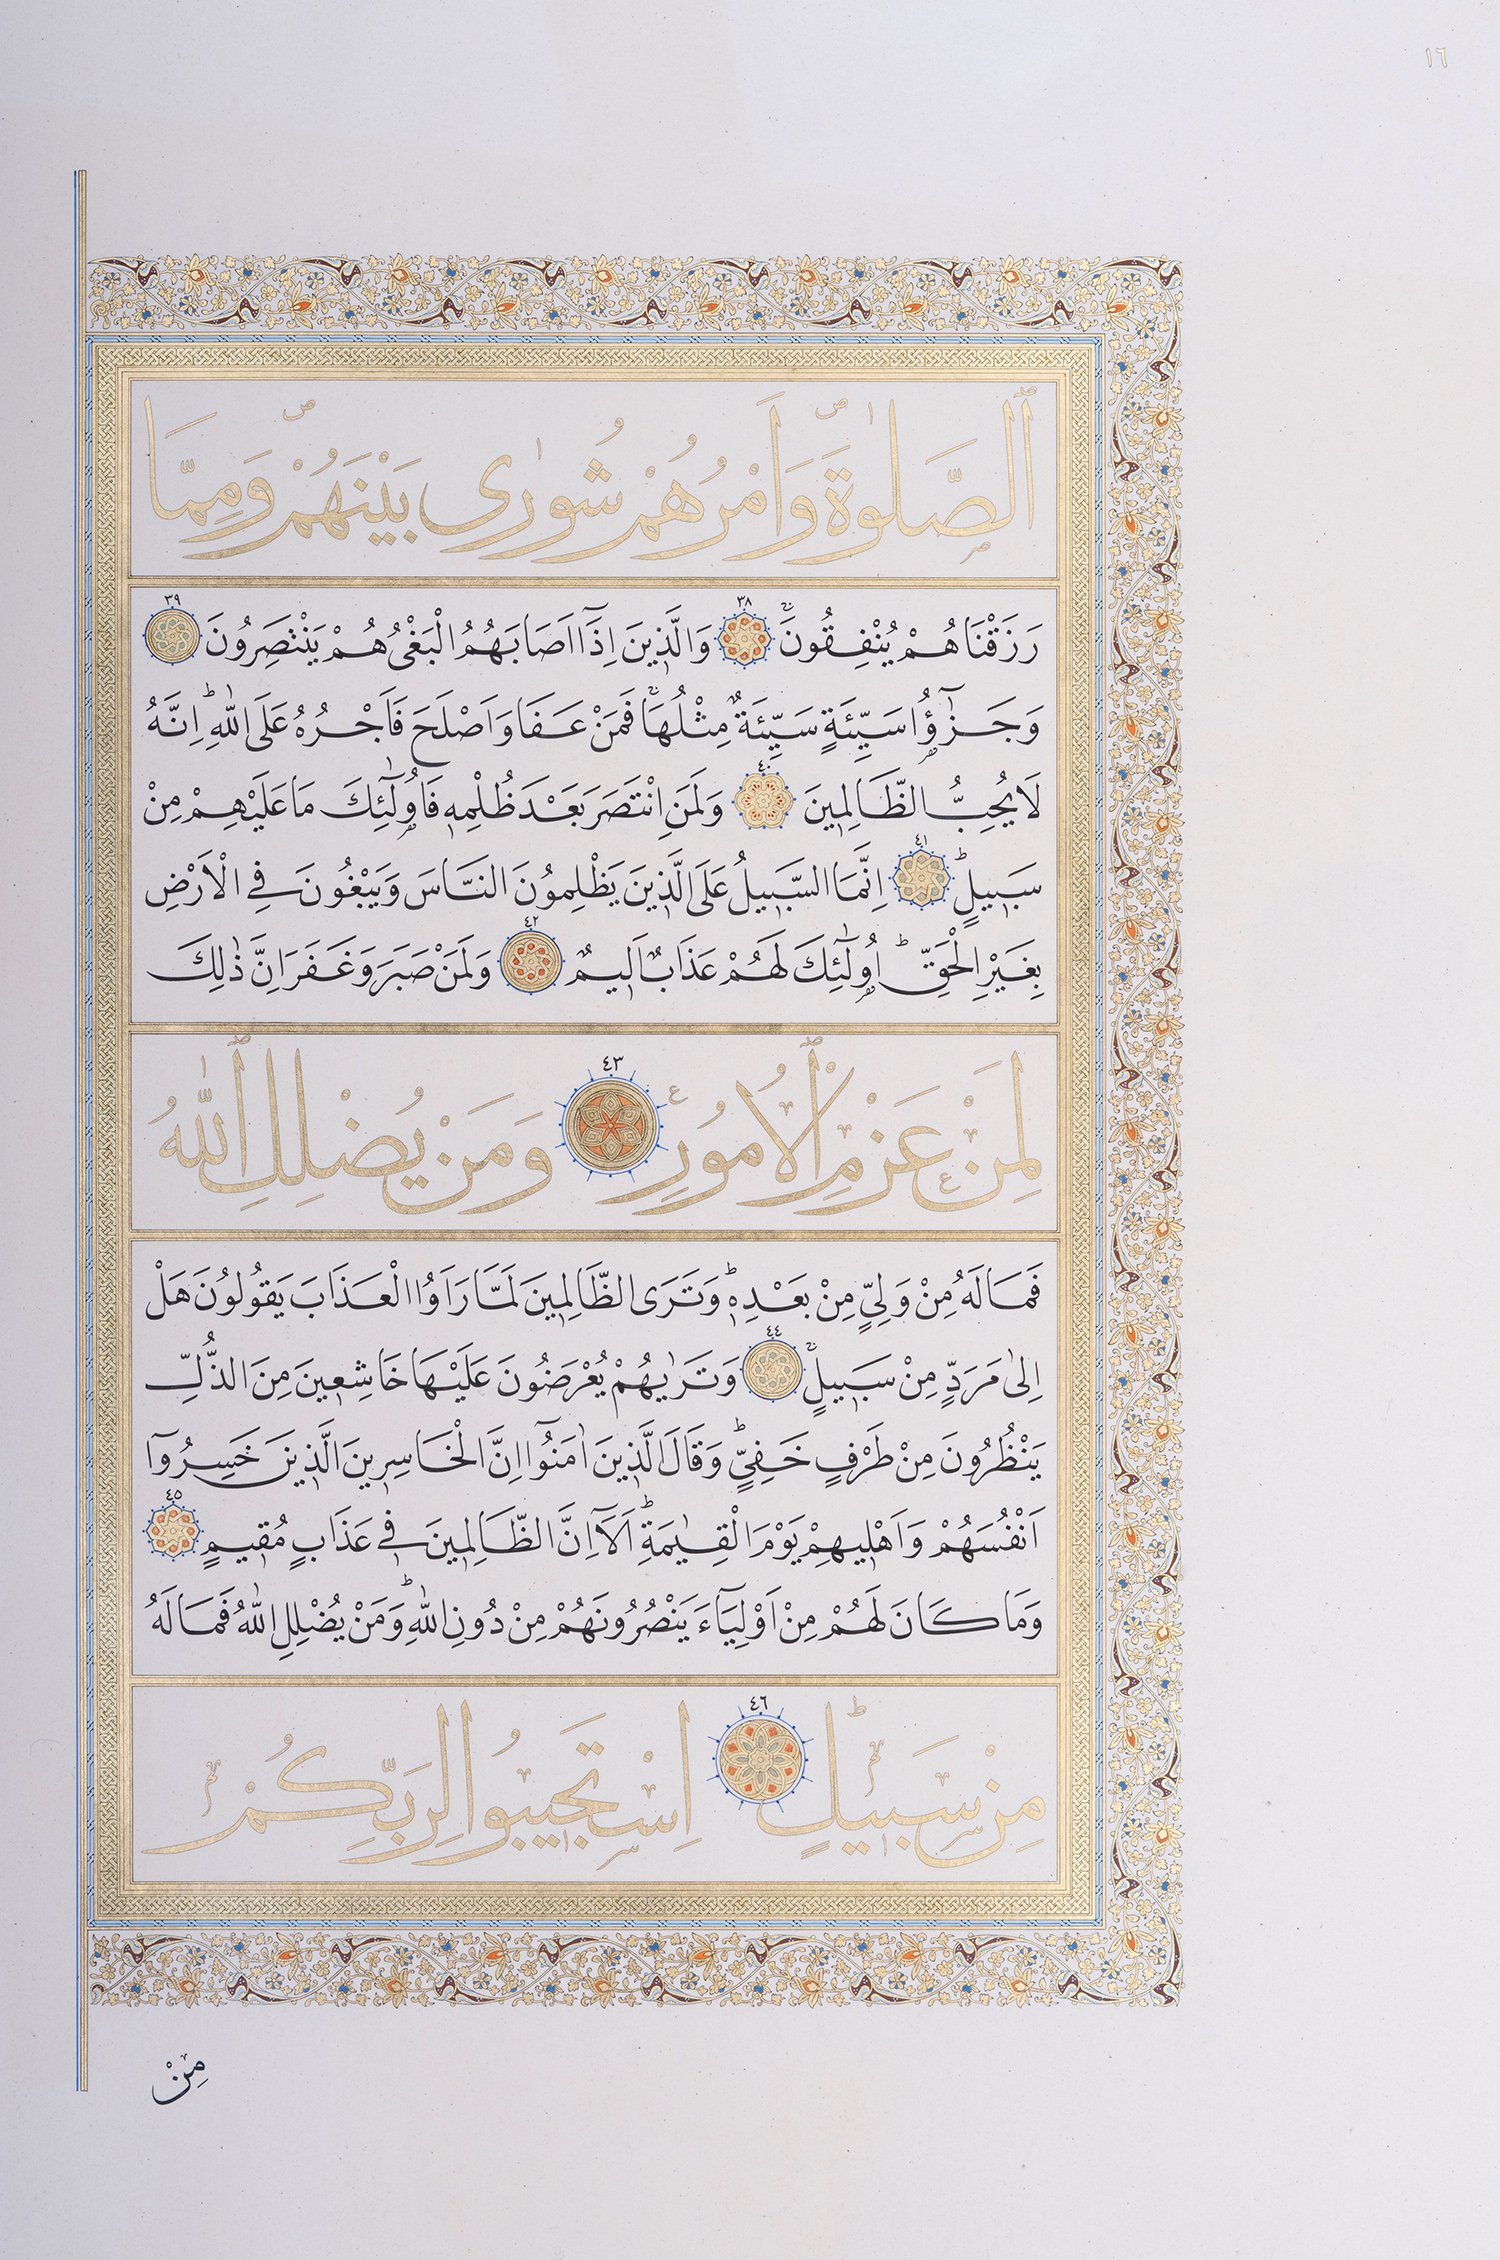 ١٦
ٱلصَّلٰوةَ وَاَمْرُهُمْ شُورٰى بَيْنَهُمْ وَمِمَّا
رَزَقْنَاهُمْ يُنْفِقُونَۚ ٣٨ وَالَّذِينَ اِذَٓا اَصَابَهُمُ الْبَغْيُ هُمْ يَنْتَصِرُونَ ٣٩
وَجَزٰٓؤُا سَيِّئَةٍ سَيِّئَةٌ مِثْلُهَاۚ فَمَنْ عَفَا وَاَصْلَحَ فَاَجْرُهُ عَلَى اللّٰهِؕ اِنَّهُ
لَا يُحِبُّ الظَّالِمِينَ ٤٠ وَلَمَنِ انْتَصَرَ بَعْدَ ظُلْمِهٖ فَاُو۬لٰٓئِكَ مَا عَلَيْهِمْ مِنْ
سَبِيلٍؕ ٤١ اِنَّمَا السَّبِيلُ عَلَى الَّذِينَ يَظْلِمُونَ النَّاسَ وَيَبْغُونَ فِي الْاَرْضِ
بِغَيْرِ الْحَقِّؕ اُو۬لٰٓئِكَ لَهُمْ عَذَابٌ اَلِيمٌ ٤٢ وَلَمَنْ صَبَرَ وَغَفَرَ اِنَّ ذٰلِكَ
لَمِنْ عَزْمِ ٱلْاُمُورِ ٤٣ وَمَنْ يُضْلِلِ ٱللّٰهُ
فَمَا لَهُ مِنْ وَلِيٍّ مِنْ بَعْدِهٖؕ وَتَرَى الظَّالِمِينَ لَمَّا رَاَوُا الْعَذَابَ يَقُولُونَ هَلْ
اِلٰى مَرَدٍّ مِنْ سَبِيلٍۚ ٤٤ وَتَرٰيهُمْ يُعْرَضُونَ عَلَيْهَا خَاشِعِينَ مِنَ الذُّلِّ
يَنْظُرُونَ مِنْ طَرْفٍ خَفِيٍّؕ وَقَالَ الَّذِينَ اٰمَنُٓوا اِنَّ الْخَاسِرِينَ الَّذِينَ خَسِرُٓوا
اَنْفُسَهُمْ وَاَهْلِيهِمْ يَوْمَ الْقِيٰمَةِؕ اَلَٓا اِنَّ الظَّالِمِينَ فِي عَذَابٍ مُقِيمٍ ٤٥
وَمَا كَانَ لَهُمْ مِنْ اَوْلِيَٓاءَ يَنْصُرُونَهُمْ مِنْ دُونِ اللّٰهِؕ وَمَنْ يُضْلِلِ اللّٰهُ فَمَا لَهُ
مِنْ سَبِيلٍؕ ٤٦ اِسْتَجِيبُوا لِرَبِّكُمْ
مِنْ